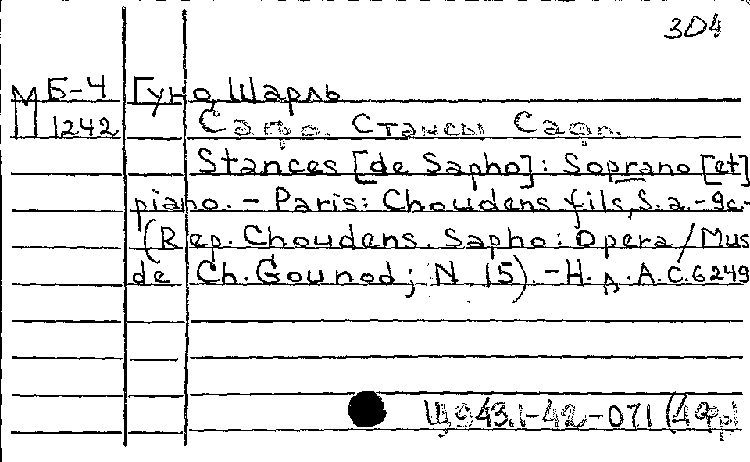 304
М Б-4 Гуно, Шарль
П 1242 Сафо. Стансы Сафо.
Stances [de Sapho]: Soprano [et]
piano. - Paris: Choudens fils, S. a. - 9c.-
(Rep. Choudens. Sapho: Opera / Mus
de Ch. Gounod; N 15). - Н. Д. A.C. 6249
Щ943.1-42-071 (4Фр)